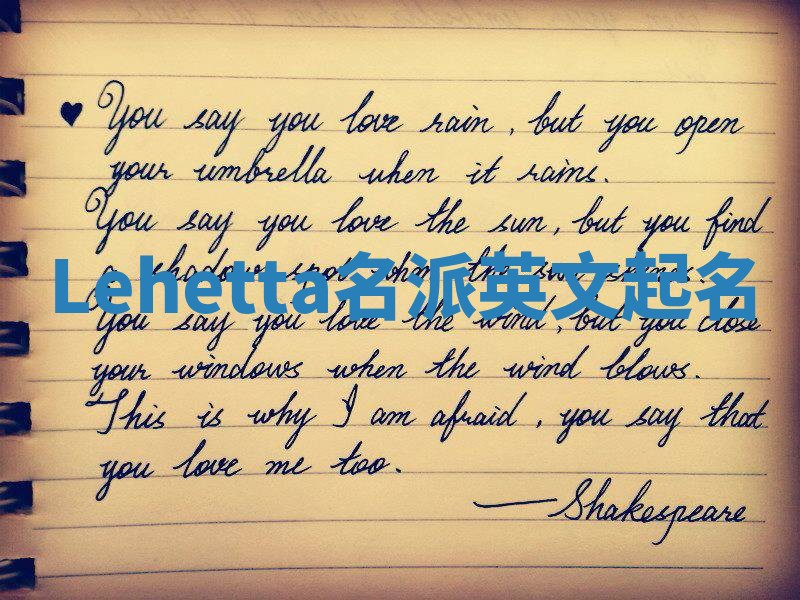 ♥ You say you love rain, but you open
your umbrella when it rains.
You say you love the sun, but you find
a shadow spot when the sun shines.
Lehetta名派英文起名
You say you love the wind, but you close
your windows when the wind blows.
This is why I am afraid, you say that
you love me too.
—Shakespeare